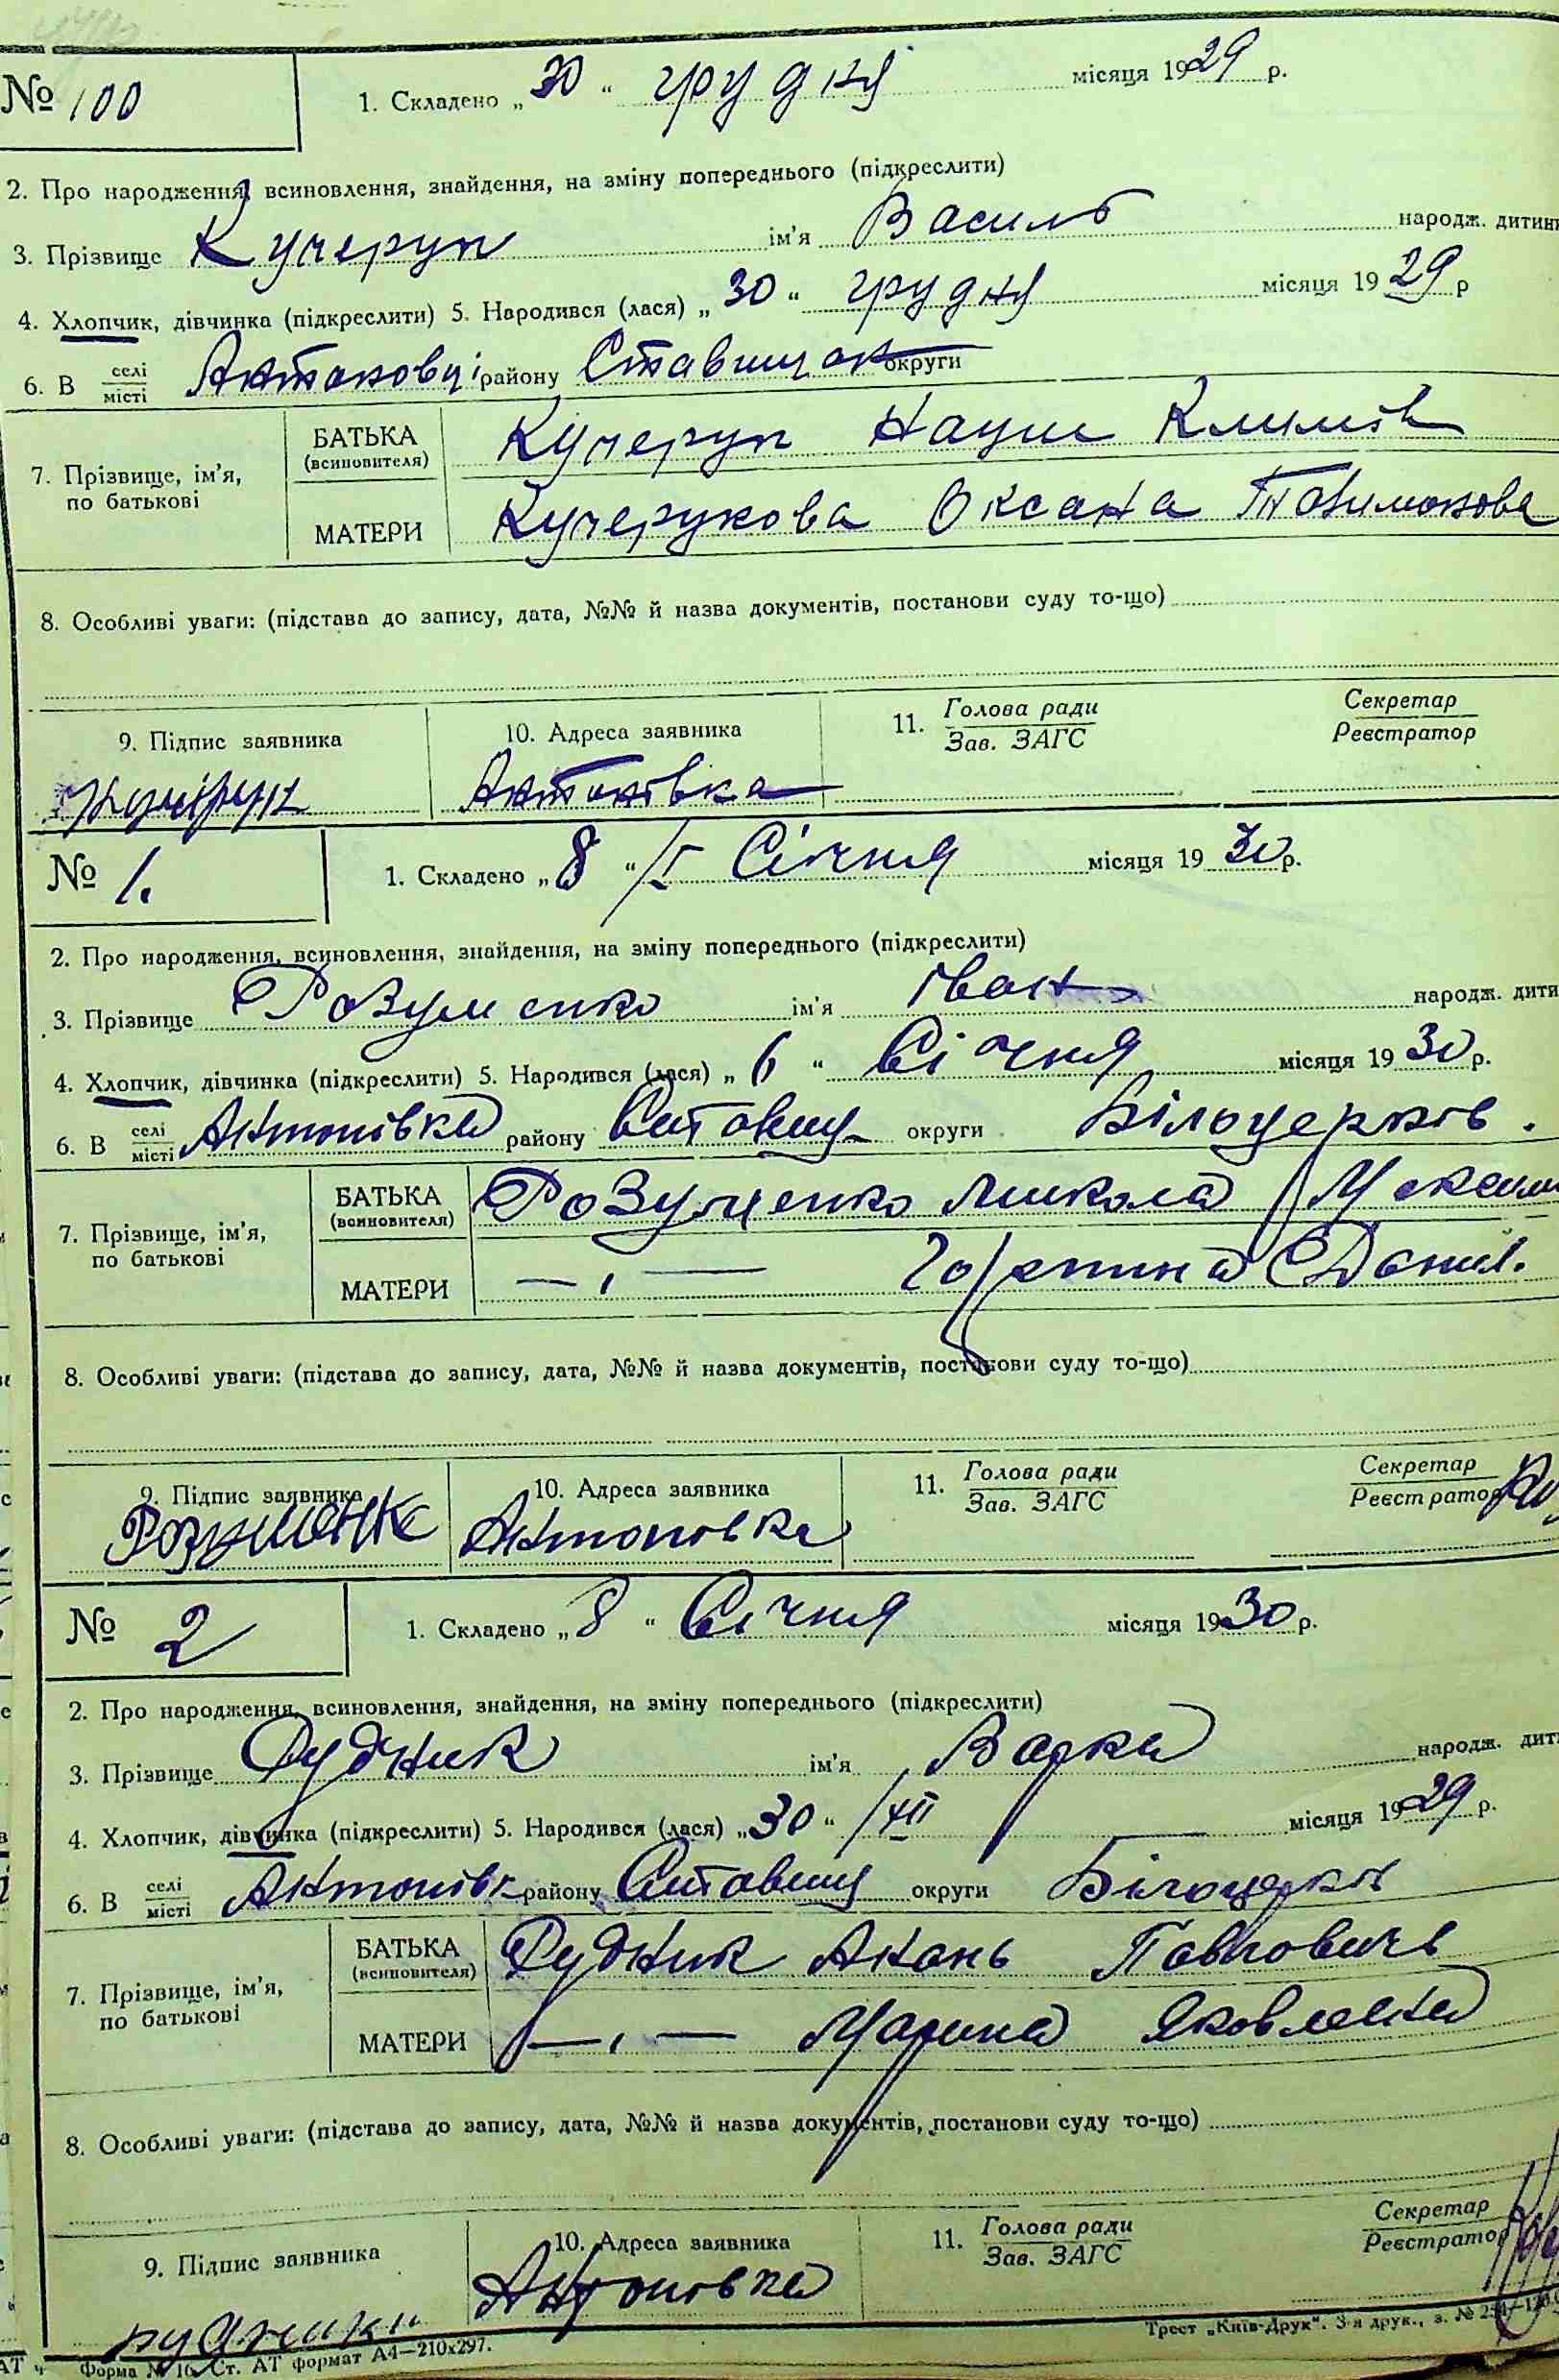 № 100
1. Складено „ 30 “ грудня місяця 1929 р.
2. Про народження, всиновлення, знайдення, на зміну попереднього (підкреслити)
3. Прізвище Кучерук ім'я Василь народж. дитини
4. Хлопчик, дівчинка (підкреслити) 5. Народився (лася) „ 30 “ грудня місяця 19 29 р
6. В селі місті Антоновці району Ставищ округи
7. Прізвище, ім'я, по батькові
БАТЬКА (всиновителя) Кучерук Наум Климів
МАТЕРИ Кучерукова Оксана
8. Особливі уваги: (підстава до запису, дата, №№ й назва документів, постанови суду то-що)
9. Підпис заявника 10. Адреса заявника 11. Голова ради Зав. ЗАГС Секретар Реєстратор
Антонівка
№ 1.
1. Складено „ 8 “ /I Січня місяця 19 30 р.
2. Про народження, всиновлення, знайдення, на зміну попереднього (підкреслити)
3. Прізвище Розуменко ім'я Іван народж. дити
4. Хлопчик, дівчинка (підкреслити) 5. Народився (лася) „ 6 “ Січня місяця 19 30 р.
6. В селі місті Антонівка району Ставищ округи Білоцерків.
7. Прізвище, ім'я, по батькові
БАТЬКА (всиновителя) Розуменко Микола Максим
МАТЕРИ — „ — Горпина Данил.
8. Особливі уваги: (підстава до запису, дата, №№ й назва документів, постанови суду то-що)
9. Підпис заявника 10. Адреса заявника 11. Голова ради Зав. ЗАГС Секретар Реєстратор
Розуменко Антоновка
№ 2
1. Складено „ 8 “ Січня місяця 1930 р.
2. Про народження, всиновлення, знайдення, на зміну попереднього (підкреслити)
3. Прізвище Рудник ім'я Варка народж. дит
4. Хлопчик, дівчинка (підкреслити) 5. Народився (лася) „ 30 “ /XII місяця 1929 р.
6. В селі місті Антонівк району Ставищ округи Білоцерків
7. Прізвище, ім'я, по батькові
БАТЬКА (всиновителя) Рудник Анань Павлович
МАТЕРИ — „ — Марина Яковлевна
8. Особливі уваги: (підстава до запису, дата, №№ й назва документів, постанови суду то-що)
9. Підпис заявника 10. Адреса заявника 11. Голова ради Зав. ЗАГС Секретар Реєстратор
Антоновка
Форма № 16. Ст. АТ формат А4—210х297.
Трест „Київ-Друк“. 3-я друк., з. №